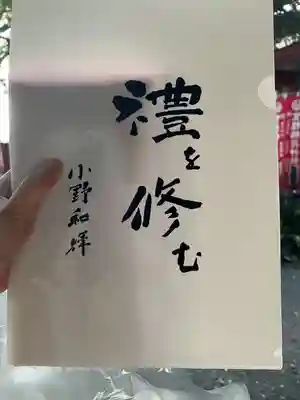 禮を
修む
小野和輝